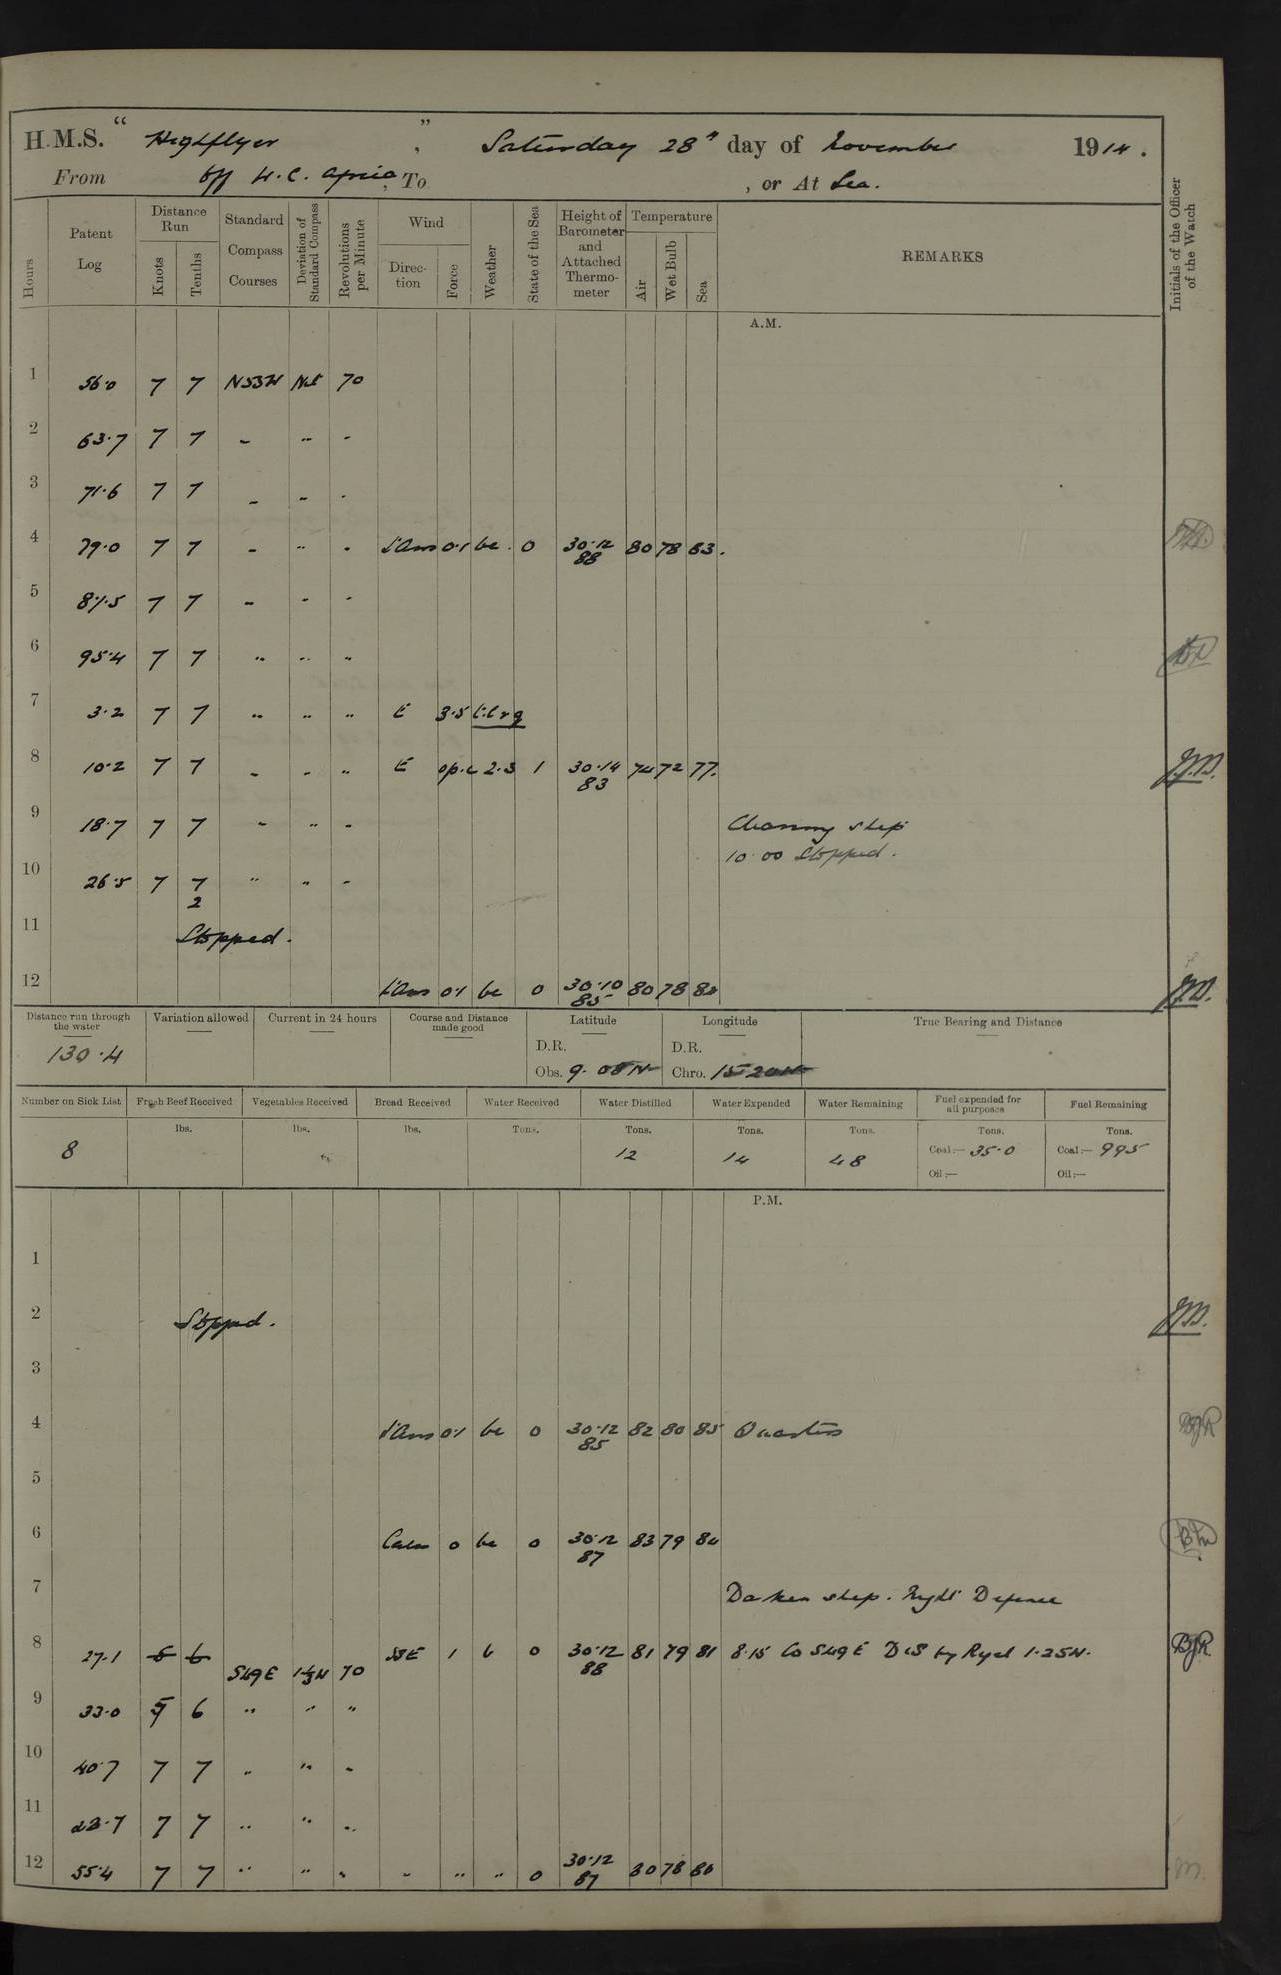 H.M.S. “ Highflyer ” , Saturday 28th day of November 1914.
From off W.C. Africa, To , or At Sea.
Hours
Patent Log
Distance Run
Knots
Tenths
Standard Compass Courses
Deviation of Standard Compass
Revolutions per Minute
Wind
Direction
Force
Weather
State of the Sea
Height of Barometer and Attached Thermometer
Temperature
Air
Wet Bulb
Sea
REMARKS
Initials of the Officer of the Watch
A.M.
1 56.0 7 7 N53W Nil 70
2 63.7 7 7 - " -
3 71.6 7 7 - - -
4 79.0 7 7 - " - 0.1 bc 0 30.12 80 78 83
88
5 87.5 7 7 - - -
6 95.4 7 7 " " "
7 3.2 7 7 " " " E 3.5
8 10.2 7 7 - - " E op.c 2.3 1 30.14 74 72 77
83
9 18.7 7 7 - " - Cleaning ship
10.00 Stopped.
10 26.5 7 7 " " -
2
11 Stopped.
12 0.1 bc 0 30.10 80 78 82
85
Distance run through the water
130.4
Variation allowed
Current in 24 hours
Course and Distance made good
Latitude
D.R.
Obs. 9.08N
Longitude
D.R.
Chro. 15 20W
True Bearing and Distance
Number on Sick List
8
Fresh Beef Received
lbs.
Vegetables Received
lbs.
Bread Received
lbs.
Water Received
Tons.
Water Distilled
Tons.
12
Water Expended
Tons.
14
Water Remaining
Tons.
48
Fuel expended for all purposes
Tons.
Coal:— 35.0
Oil:—
Fuel Remaining
Tons.
Coal:— 995
Oil:—
P.M.
1
2 Stopped.
3
4 0.1 bc 0 30.12 82 80 85 Quarters BJR
85
5
6 Calm 0 bc 0 30.12 83 79 84
87
7 Darken ship. Night Defence
8 27.1 6 6 SSE 1 b 0 30.12 81 79 81 8.15 Co S49E D & S by Ryel 1.25N. BJR
S49E 1⅓W 70 88
9 33.0 5 6 " " "
10 40.7 7 7 " " -
11 7 7 " " "
12 55.4 7 7 " " " - " " 0 30.12 80 78 80
87